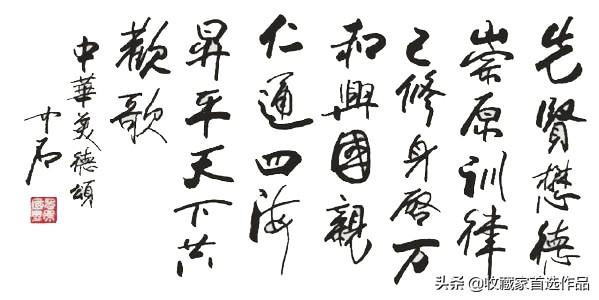 先賢懋德
崇原訓律
己修身啓万
和興國親
仁通四海
昇平天下共
歡歌
中華美德頌
中石
头条 @收藏家首选作品